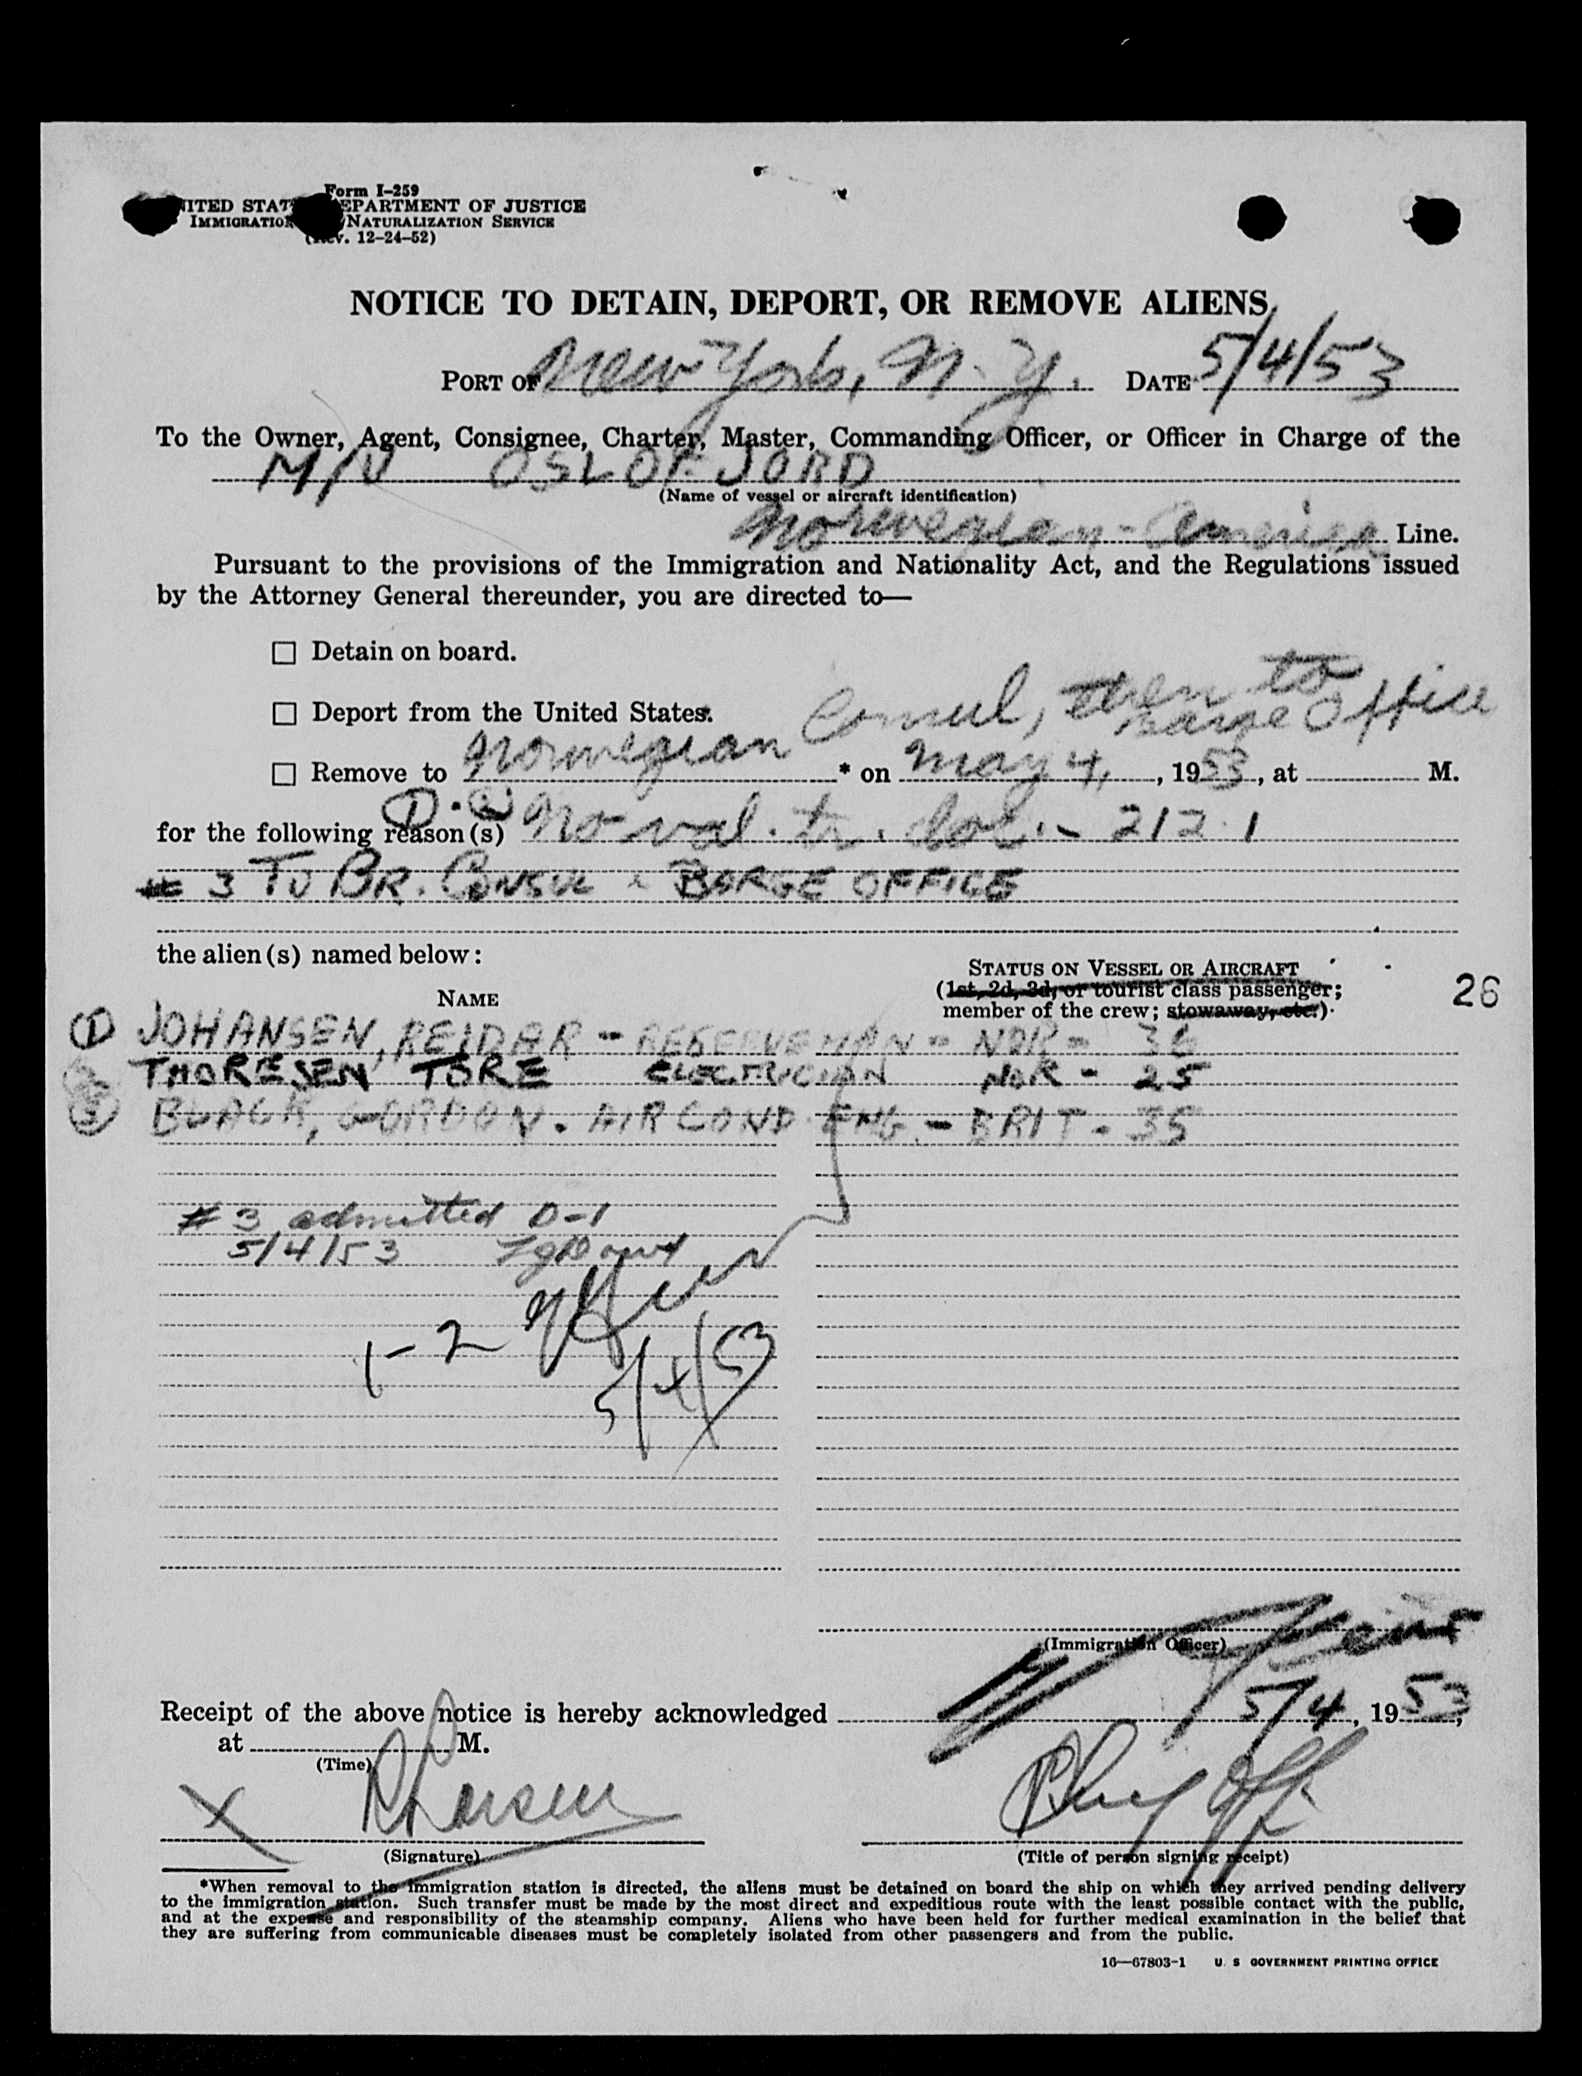 Form I-259
NITED STAT EPARTMENT OF JUSTICE
IMMIGRATION NATURALIZATION SERVICE
(Rev. 12-24-52)
NOTICE TO DETAIN, DEPORT, OR REMOVE ALIENS
PORT OF New York, N.Y. DATE 5/4/53
To the Owner, Agent, Consignee, Charter, Master, Commanding Officer, or Officer in Charge of the
M/V OSLOFJORD
(Name of vessel or aircraft identification)
Norwegian-America Line.
Pursuant to the provisions of the Immigration and Nationality Act, and the Regulations issued
by the Attorney General thereunder, you are directed to—
☐ Detain on board.
☐ Deport from the United States.
☐ Remove to Norwegian Consul, then to Barge Office * on May 4, , 1953, at M.
for the following reason(s) ① · ② No val. tr. doc. - 212.1
# 3 TO BR. CONSUL & BARGE OFFICE
the alien(s) named below:
NAME
STATUS ON VESSEL OR AIRCRAFT
(1st, 2d, 3d, or tourist class passenger;
member of the crew; stowaway, etc.)
26
① JOHANSEN, REIDAR - RESERVEMAN - NOR - 36
② THORESEN TORE ELECTRICIAN NOR - 25
③ BLACK, GORDON. AIR COND ENG. - BRIT - 35
# 3 admitted D-1
5/4/53
1-2
5/4/53
(Immigration Officer)
Receipt of the above notice is hereby acknowledged 5/4, 1953,
at M.
(Time)
X R Larsen
(Signature)
(Title of person signing receipt)
*When removal to the immigration station is directed, the aliens must be detained on board the ship on which they arrived pending delivery
to the immigration station. Such transfer must be made by the most direct and expeditious route with the least possible contact with the public,
and at the expense and responsibility of the steamship company. Aliens who have been held for further medical examination in the belief that
they are suffering from communicable diseases must be completely isolated from other passengers and from the public.
16—67803-1 U. S. GOVERNMENT PRINTING OFFICE